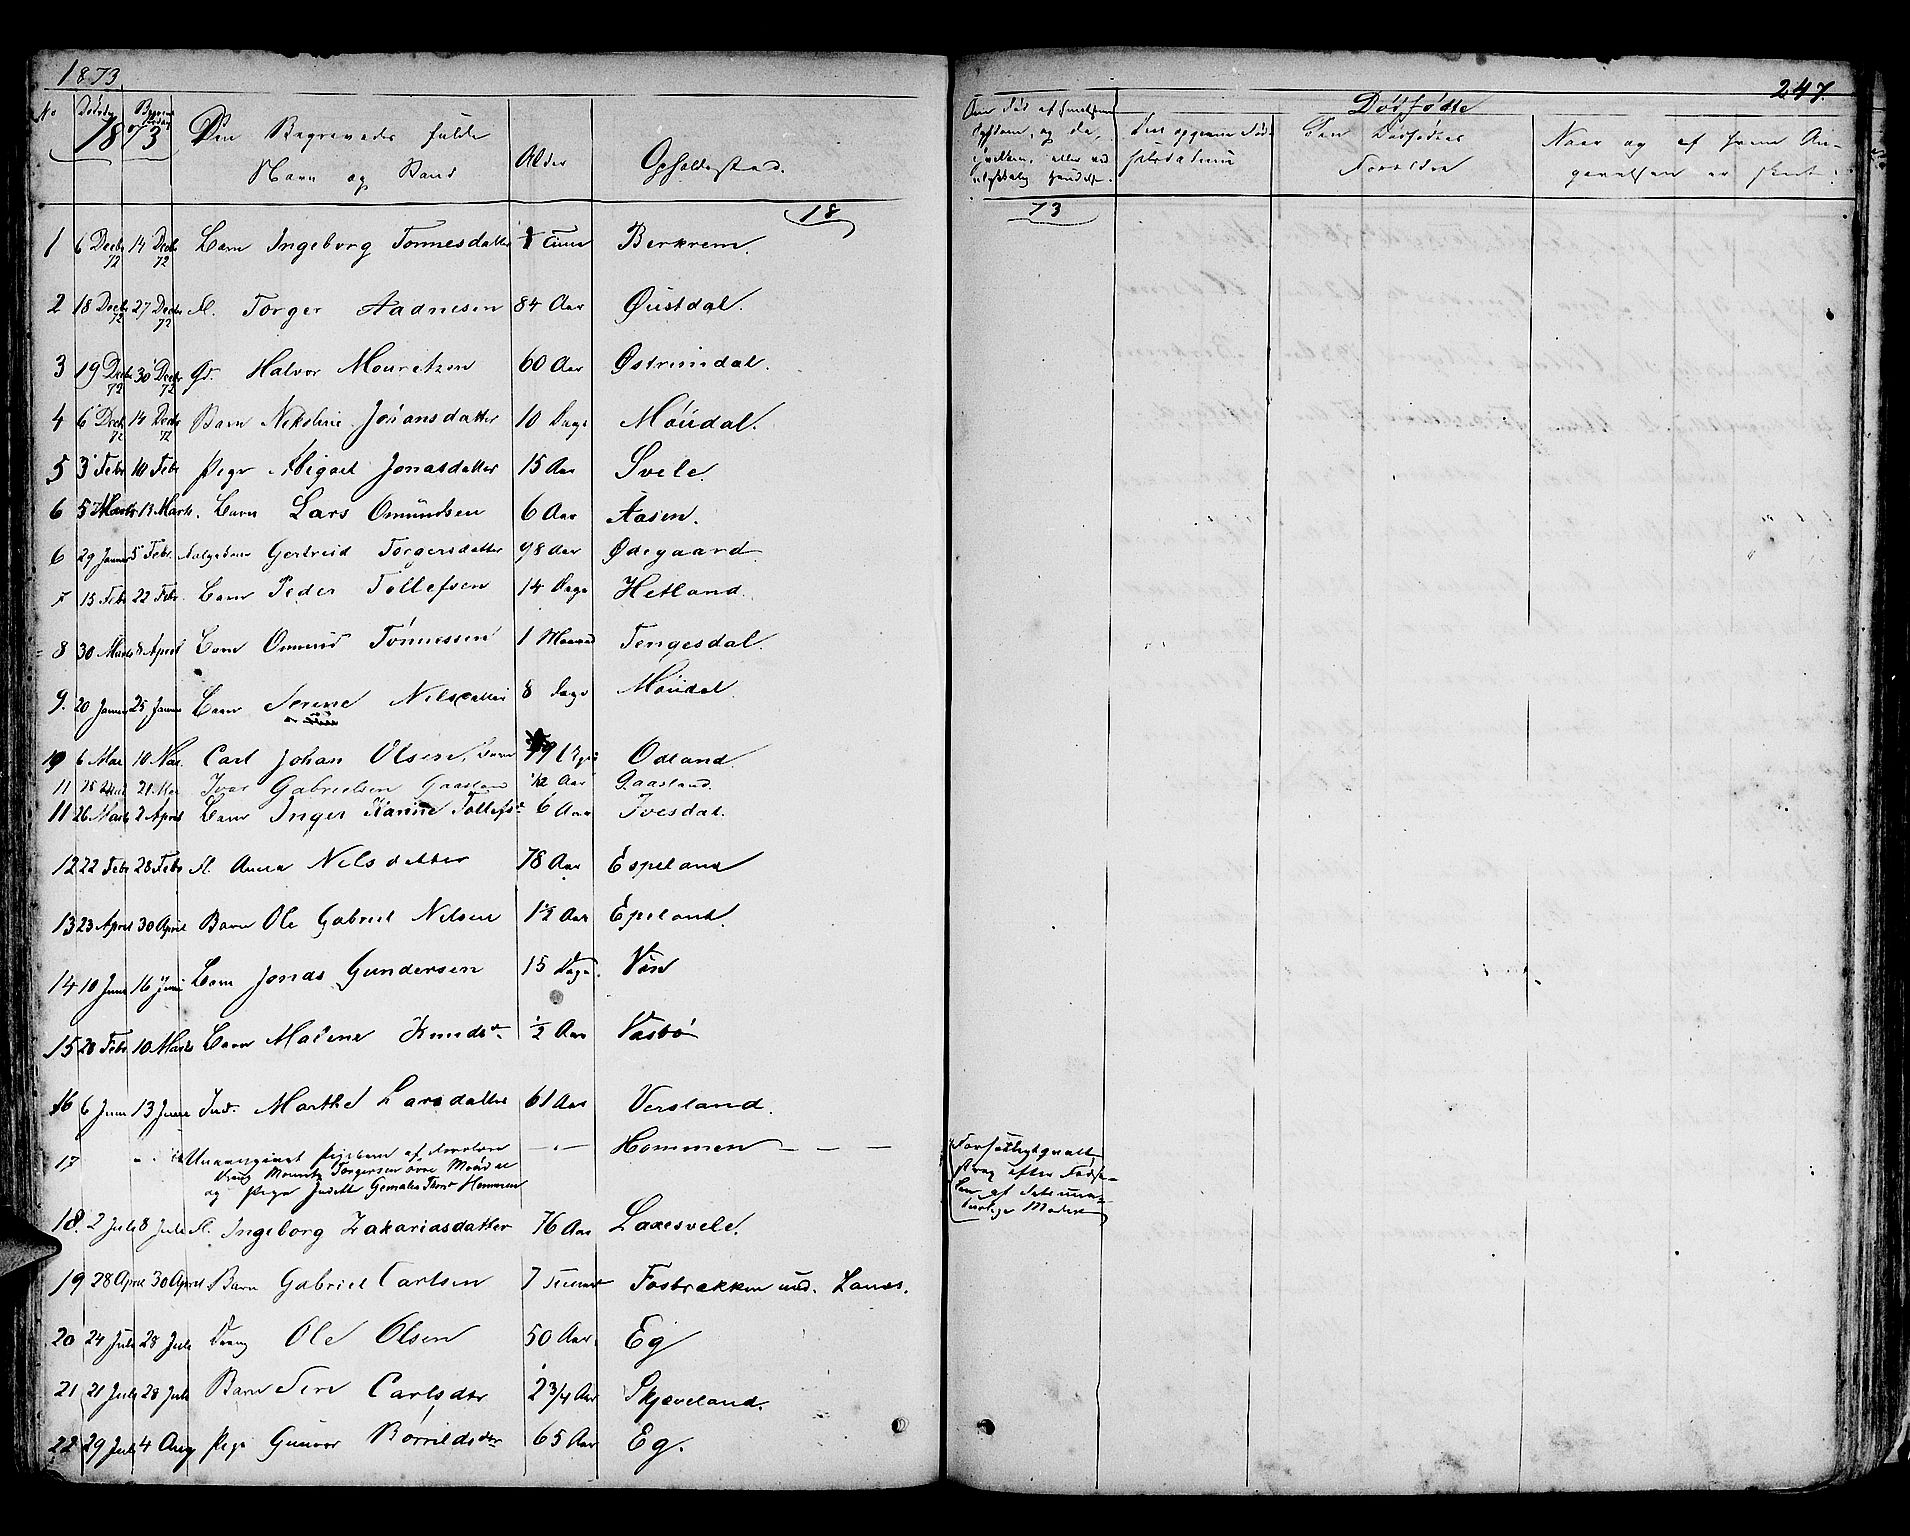 1873
247.
No Dødsdag Begravelsesdag Den Begravedes fulde Alder Opholdsstad.
1873 Navn og Stand
Om Død af smitsom Sygdom, og da, hvilken, eller ved ulykkelig Hændelse.
Den opgivne Dødsaarsdatum
Dødfødte
Den Dødfødtes Forældre
Naar og af hvem Angivelsen er skeet.
18 73
1 6 Decbr 72 14 Decbr 72 Barn Ingeborg Tønnesdatter 1 Time Berkrem.
2 18 Decbr 72 27 Decbr 72 M. Torger Aadnesen 84 Aar Øustdal.
3 19 Decbr 72 30 Decbr 72 Gd. Halvor Mouretzen 60 Aar Østremdal.
4 6 Decb 72 14 Decbr 72 Barn Nikoline Johansdatter 10 Dage Møudal.
5 3 Febr 10 Febr Pige Abigael Jonasdatter 15 Aar Svele.
6 5 Marts 13 Marts. Barn Lars Omundsen 6 Aar Aasen.
6 29 Januar 5 Febr. Gertrud Torgersdatter 98 Aar Ødegaard
7 15 Febr 22 Febr. Barn Peder Tollefsen 14 Dage Hetland.
8 30 Marts 8 April Barn Omund Tönnessen 1 Maaned Tengesdal.
9. 20 Januar 25 Januar Barn Serine Nilsdatter 8 Dage Møudal.
10 6 Mai 10 Mai. Carl Johan Olsen, Barn 19 Dage Odland.
11 15 Mai 21. Mai Ivar Gabrielsen Gaasland 1/2 Aar Gaasland.
11 26 Marts 2 April Barn Inger Karine Tollefsdr 6 Aar Ivesdal.
12 22 Febr 28 Febr M. Anna Nilsdatter 78 Aar Espeland
13 23 April 30 April Barn Ole Gabriel Nilsen 1½ Aar Epeland.
14 10 Juni 16 Juni Barn Jonas Gundersen 15 Dage. Vøn
15 20 Febr 10 Marts Barn Malene Knudsdr ½ Aar Vasbø
16 6 Juni 13 Juni Ind. Marthe Larsdatter 61 Aar Versland.
17 " " Unavngivet Pigebarn af Forældre — " — Hommen — — —
Dreng Mouritz Torgersen øvre Møudal
og Pige Judith Gemalie Thorsdr Hommen
Forsætligt qvalt strax efter Fødselen af dets unaturlige Moder
18. 2 Juli 8 Juli M. Ingeborg Zakariasdatter 76 Aar Laxesvele.
19 28 April 30 April Barn Gabriel Carlsen 7 Timer Fosbrækken und. Lauas.
20 24 Juli 28 Juli Dreng Ole Olsen 50 Aar. Eg
21 21 Juli 28 Juli Barn Seri Carlsdtr 2 3/4 Aar Skjæveland.
22 29 Juli 4 Aug Pige Gunvor Børrildsdr 65 Aar Eg.